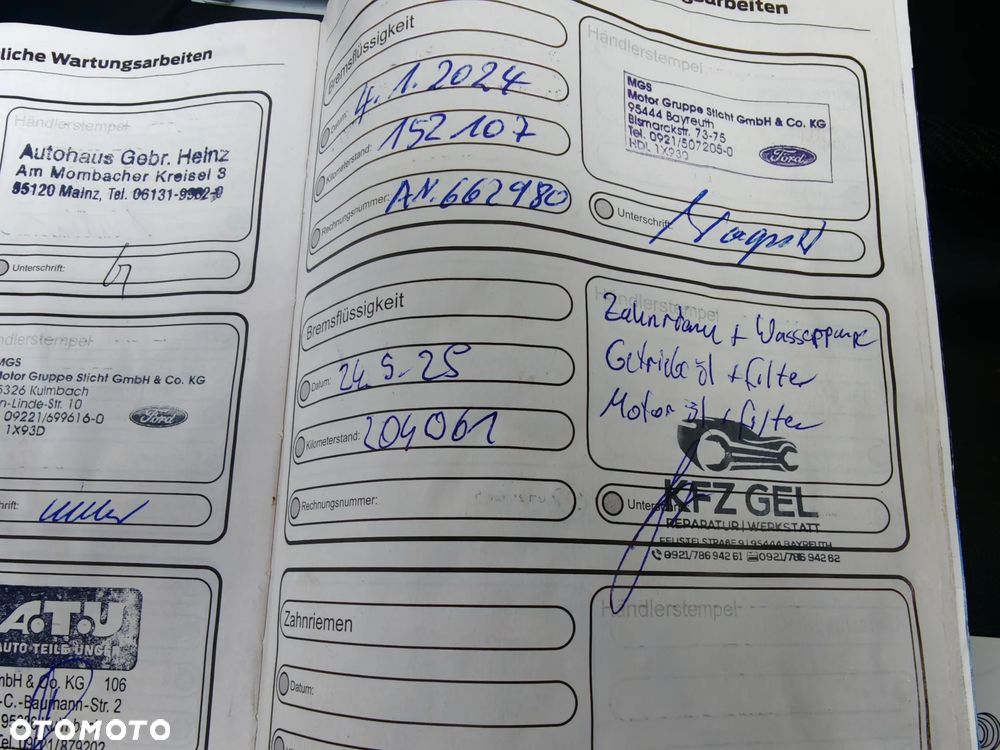 tliche Wartungsarbeiten
Händlerstempel
Autohaus Gebr. Heinz
Am Mombacher Kreisel 3
55120 Mainz, Tel. 06131-9962-0
Unterschrift:
Händlerstempel
MGS
Motor Gruppe Sticht GmbH & Co. KG
95326 Kulmbach
n-Linde-Str. 10
09221/699616-0
1X93D
Ford
hrift:
A.T.U
AUTO-TEILE UNGER
mbH & Co. KG 106
-C.-Baumann-Str. 2
Tel. 09221/879202
gsarbeiten
Bremsflüssigkeit
Datum: 4.1.2024
Kilometerstand: 152107
Rechnungsnummer: AN.662980
Händlerstempel
MGS
Motor Gruppe Sticht GmbH & Co. KG
95444 Bayreuth
Bismarckstr. 73-75
Tel. 0921/507205-0
HDL 1X93D
Ford
Unterschrift:
Bremsflüssigkeit
Datum: 24.5-25
Kilometerstand: 204061
Rechnungsnummer:
Händlerstempel
Zahnriemen + Wasserpumpe
Getriebeöl + Filter
Motoröl + Filter
Unterschrift:
KFZ GEL
REPARATUR | WERKSTATT
FEUSTELSTRAßE 9 | 95444 BAYREUTH
0921/786 942 61 0921/786 942 62
Zahnriemen
Datum:
Händlerstempel
OTOMOTO